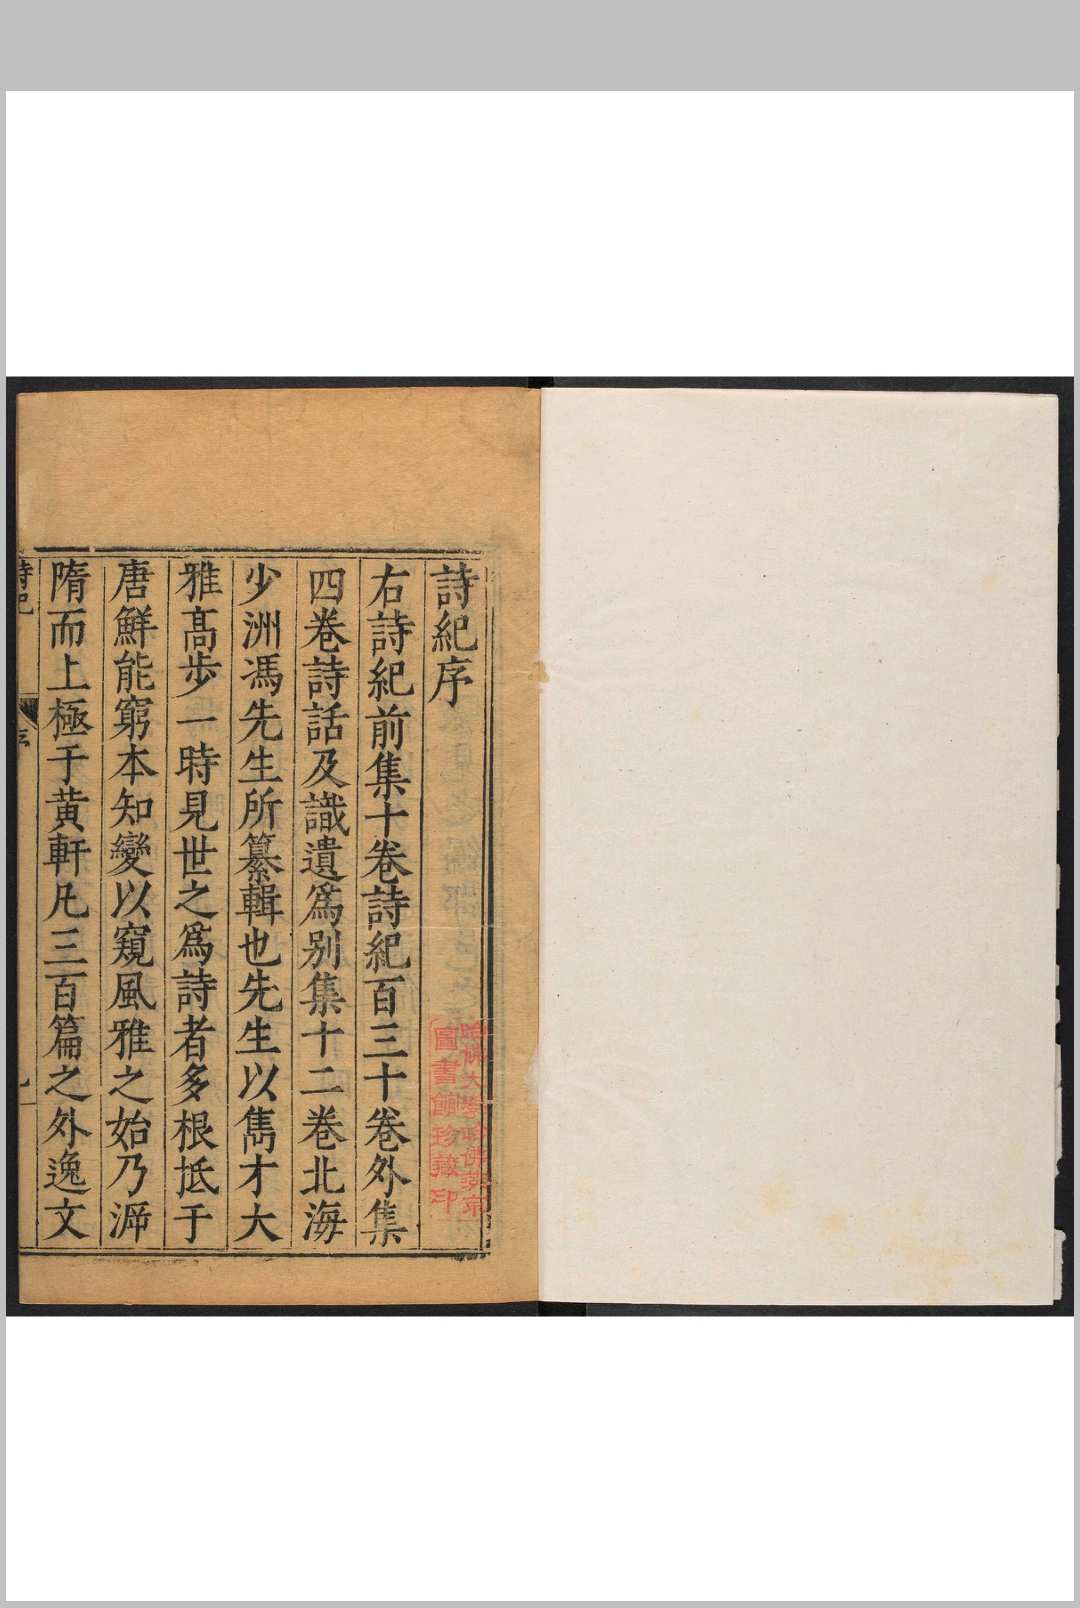 詩紀序
右詩紀前集十卷詩紀百三十卷外集
四卷詩話及識遺爲别集十二卷北海
少洲馮先生所纂輯也先生以雋才大
雅髙步一時見世之爲詩者多根抵于
唐鮮能窮本知變以窺風雅之始乃泝
隋而上極于黄軒凡三百篇之外逸文
詩紀
序
哈佛大學哈佛燕京
圖書館珍藏印